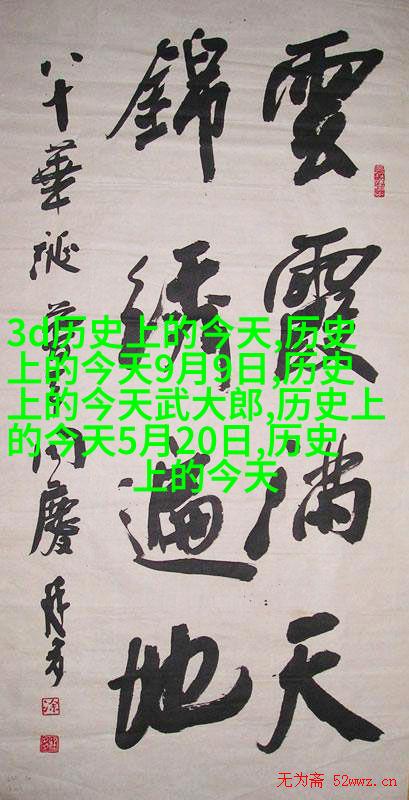 雲霞满天
錦繡遍地
八十華诞
同慶
3d历史上的今天,历史
上的今天9月9日,历史
上的今天武大郎,历史上
的今天5月20日,历史
上的今天
无为斋 52wwz.cn